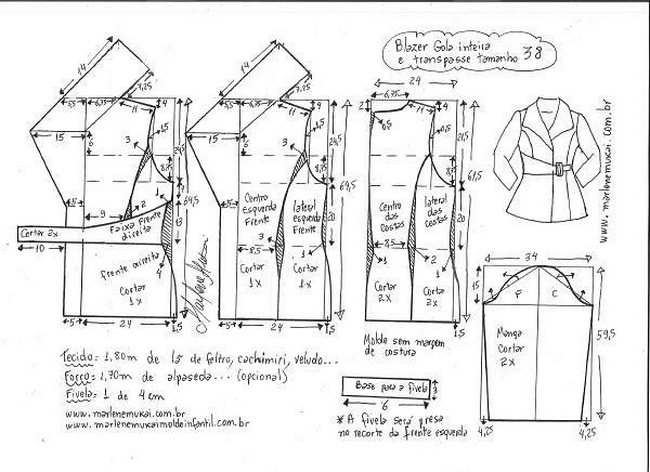 Blazer Gola inteira
e transpasse tamanho 38
14
7,25
5,5
6,75
11
4
15
6
1,5
3
8,75
24,5
4
64,5
3,5
9
2
1
Faixa frente
direita
Cortar 2x
10
frente direita
Cortar
1x
4
5
24
1,5
14
7,25
5,5
6,75
11
4
15
6
1,5
3
8,75
24,5
69,5
3,5
Centro
esquerda
Frente
lateral
esquerda
Frente
20
3
8,5
1
Cortar
1x
Cortar
1x
5
24
1,5
Marlene Mukai
24
6,75
2
11
4
0,5
8,75
24,5
61,5
Centro
das
costas
lateral
das
costas
20
8,5
1
2
1
Cortar
2x
Cortar
2x
1,5
Molde sem margem
de costura
www.marlenemukai.com.br
34
15
F
C
Manga
Cortar
2x
59,5
4,25
4,25
Base para a fivela
3
6
* A fivela será presa
no recorte da frente esquerda
Tecido: 1,80m de lã de feltro, cachimiri, veludo...
Forro: 1,70m de alpaseda... (opcional)
Fivela: 1 de 4 cm
www.marlenemukai.com.br
www.marlenemukaimoldeinfantil.com.br